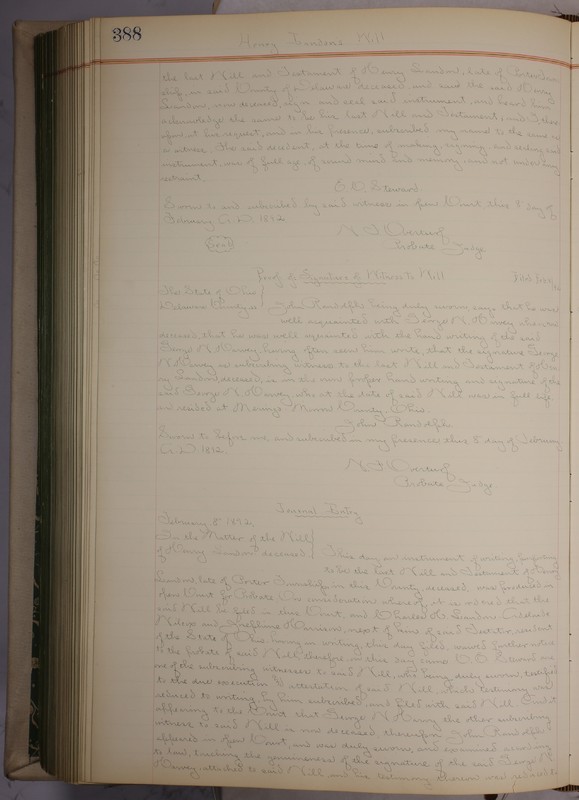 388
Henry Landons Will
the last Will and Testament of Henry Landon, late of Porter Town
ship, in said County of Delaware deceased, and said the said Henry
Landon, now deceased, sign and seal said instrument, and heard him
acknowledge the same to be his last Will and Testament, and I there
fore at his request, and in his presence, subscribed my name to the same as
a witness. The said decedent, at the time of making, signing, and sealing said
instrument, was of full age, of sound mind and memory, and not under any
restraint.
O. D. Steward
Sworn to and subscribed by said witness in open Court this 8 day of
February A.D. 1892
Seal
N. F. Overturf
Probate Judge
Proof of Signature of Witness to Will
The State of Ohio
Delaware County ss
John Randolph being duly sworn says that he was
well acquainted with George N. Harvey when
deceased, that he was well acquainted with the hand writing of the said
George N. Harvey, having often seen him write, that the signature George
N. Harvey as subscribing witness to the last Will and Testament of Hen
ry Landon, deceased, is in the own proper hand writing and signature of the
said George N. Harvey, who at the date of said Will, was in full life
and resided at Marengo Morrow County, Ohio.
John Randolph
Sworn to before me, and subscribed in my presence this 8 day of February
A.D. 1892
N. F. Overturf
Probate Judge
Journal Entry
February 8" 1892
In the Matter of the Will
of Henry Landon deceased
This day an instrument of writing purporting
to be the last Will and Testament of Henry
Landon late of Porter Township in this County, deceased, was produced in
open Court for Probate. On consideration whereof, it is ordered that the
said Will be filed in this Court, and Charles H. Landon
Wilcox and Josephine Harrison, next of kin of said Testator, resident
of the State of Ohio having in writing, this day filed, waived further notice
to the probate of said Will therefore on this day came O. D. Steward one
of the subscribing witnesses to said Will, who being duly sworn, testified
to the due execution & attestation of said Will which testimony was
reduced to writing by him subscribed, and filed with said Will. And it
appearing to the Court that George N. Harvey the other subscribing
witness to said Will is now deceased, therefore John Randolph
appeared in open Court, and was duly sworn, and examined according
to law, touching the genuineness of the signature of the said George N.
Harvey, attached to said Will and his testimony thereon was reduced to